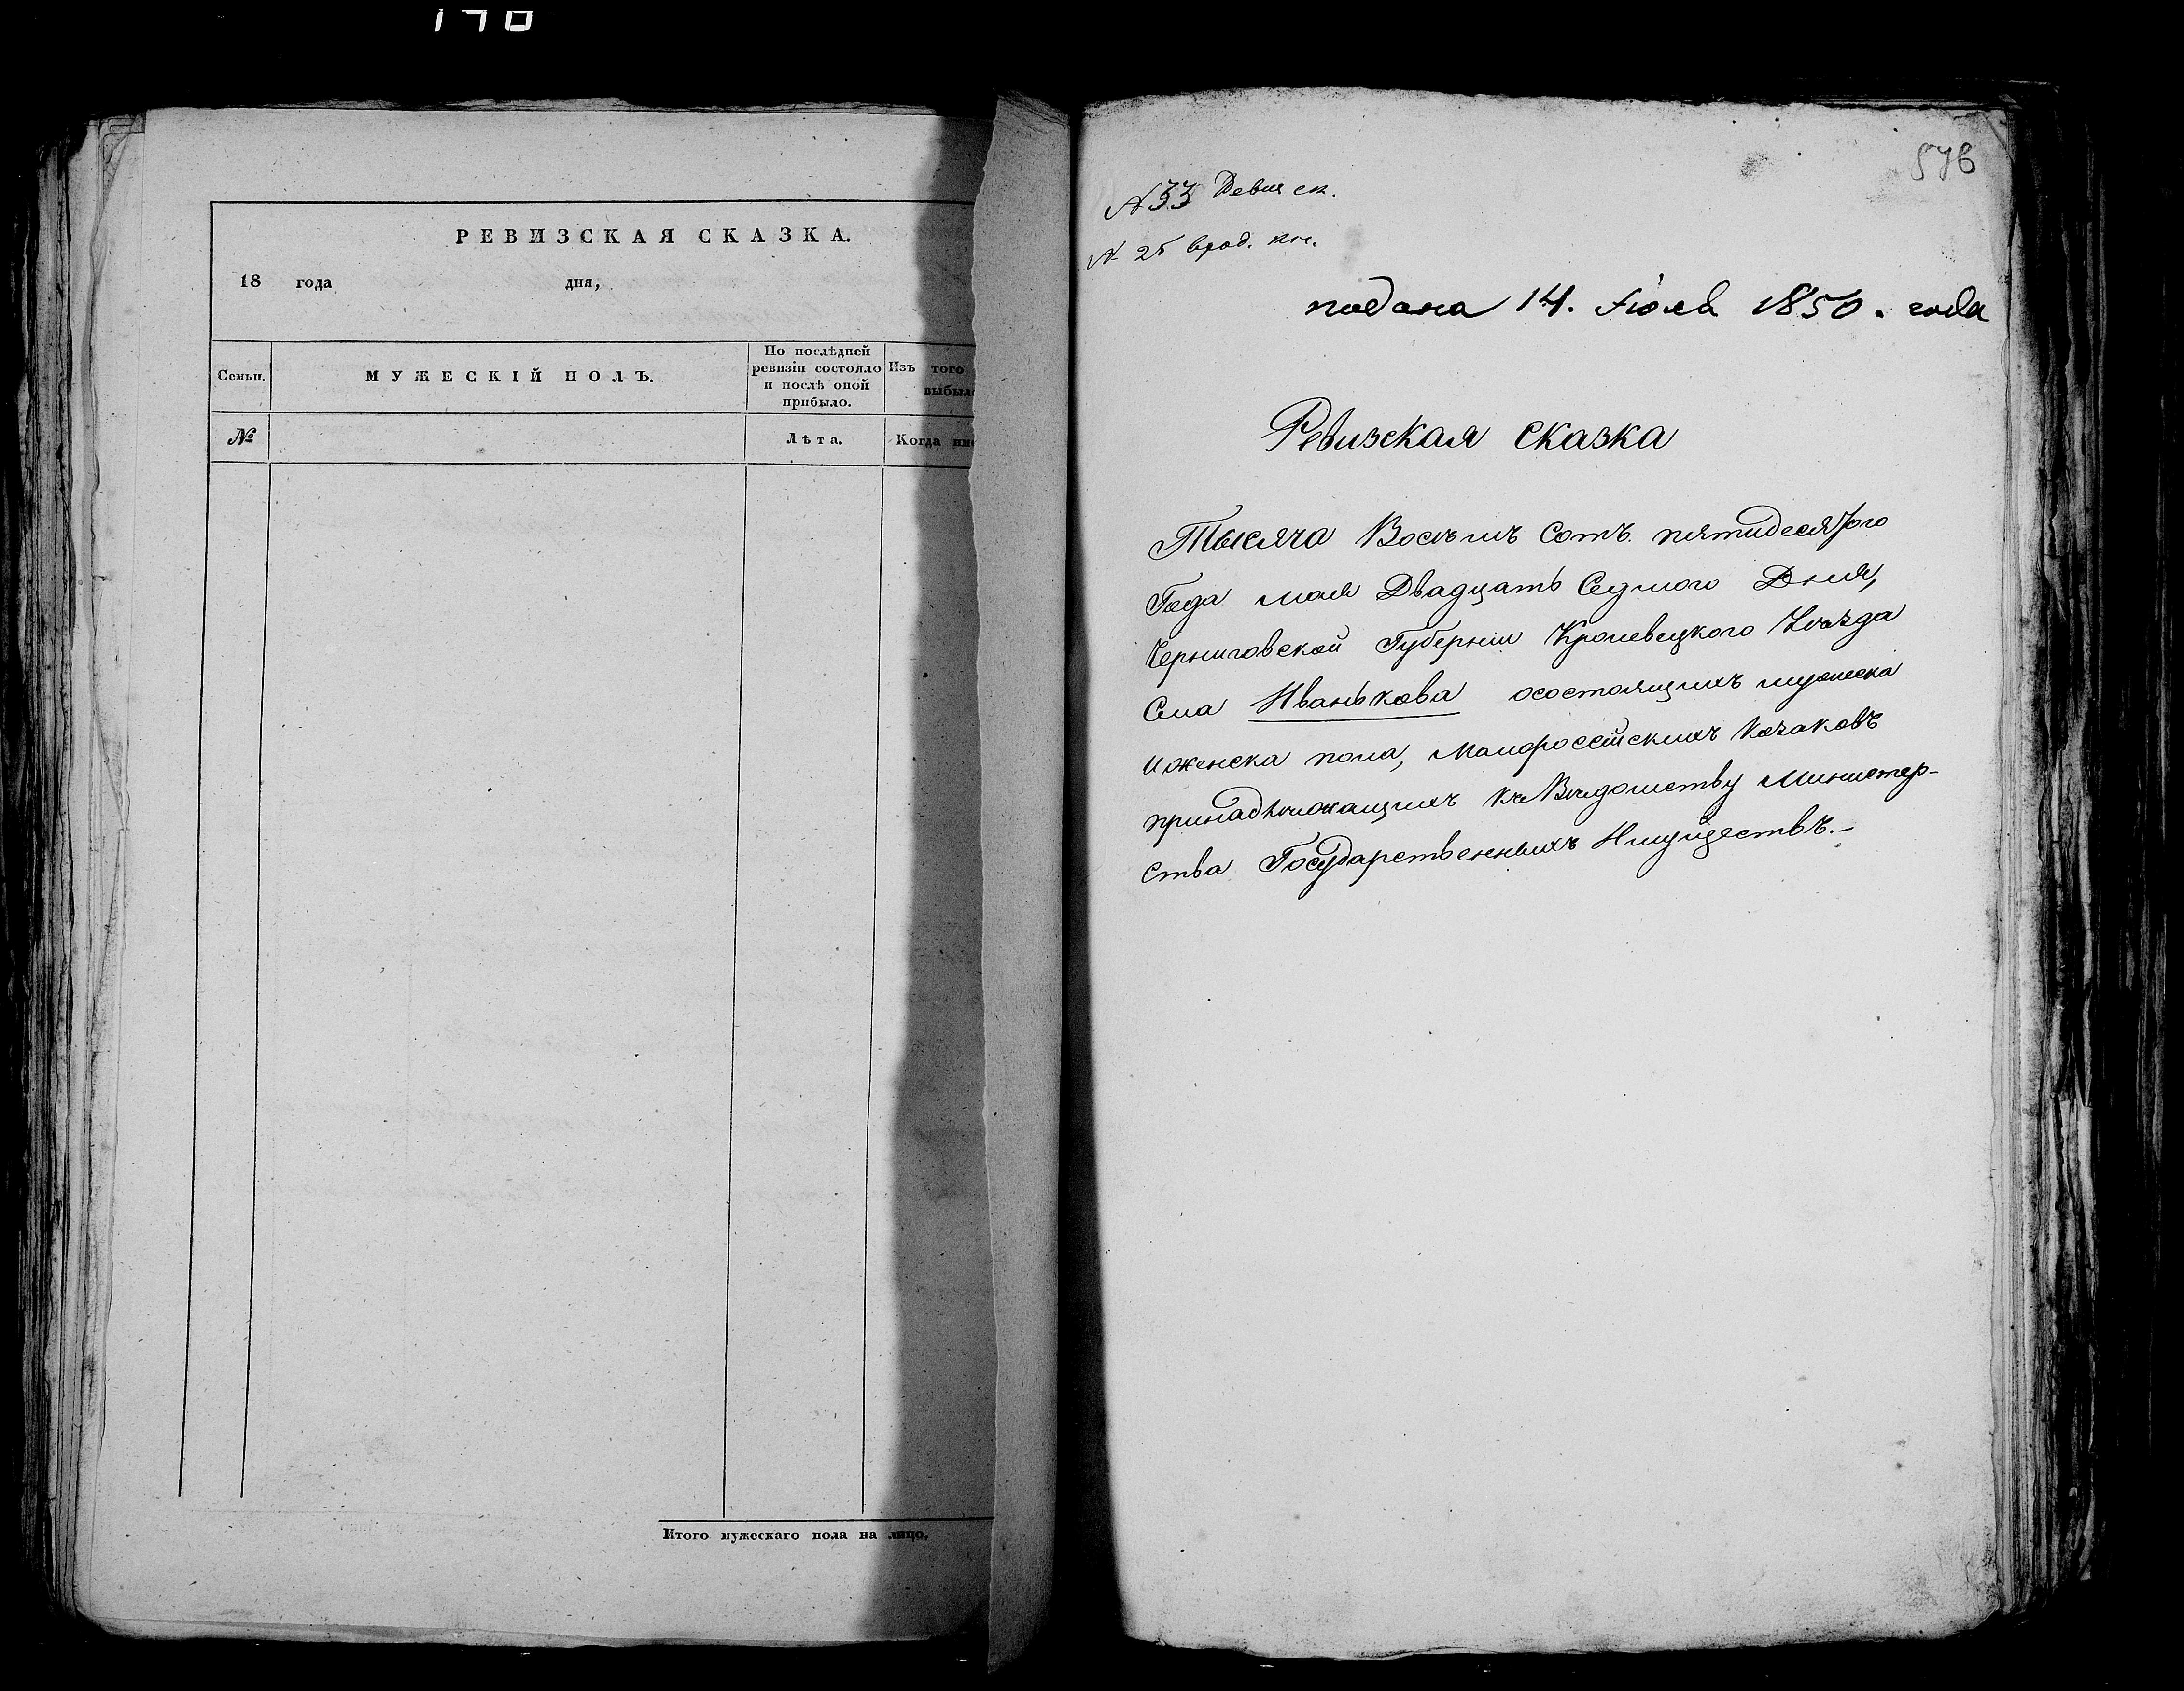 РЕВИЗСКАЯ СКАЗКА.
18 года дня,
Семьи.
МУЖЕСКІЙ ПОЛЪ.
По послѣдней
ревизіи состояло
и послѣ оной
прибыло.
Изъ того
выбыл
№
Лѣта.
Когда им
Итого мужескаго пола на лицо,
576
№ 33 Ревиз ск.
№ 25
подана 14. Іюля 1850. года
Ревизская сказка
Тысяча Восѣмъ Сотъ пятидесятого
Года мая Двадцать Седмого Дня,
Черниговской Губерніи Кролевецкого Уѣзда
Села Иванькова осостоящихъ мужеска
иженска пола, Малороссійскихъ Козаковъ
принадлѣжащихъ къ Вѣдомству Министер-
ства Государственныхъ Имуществъ.-